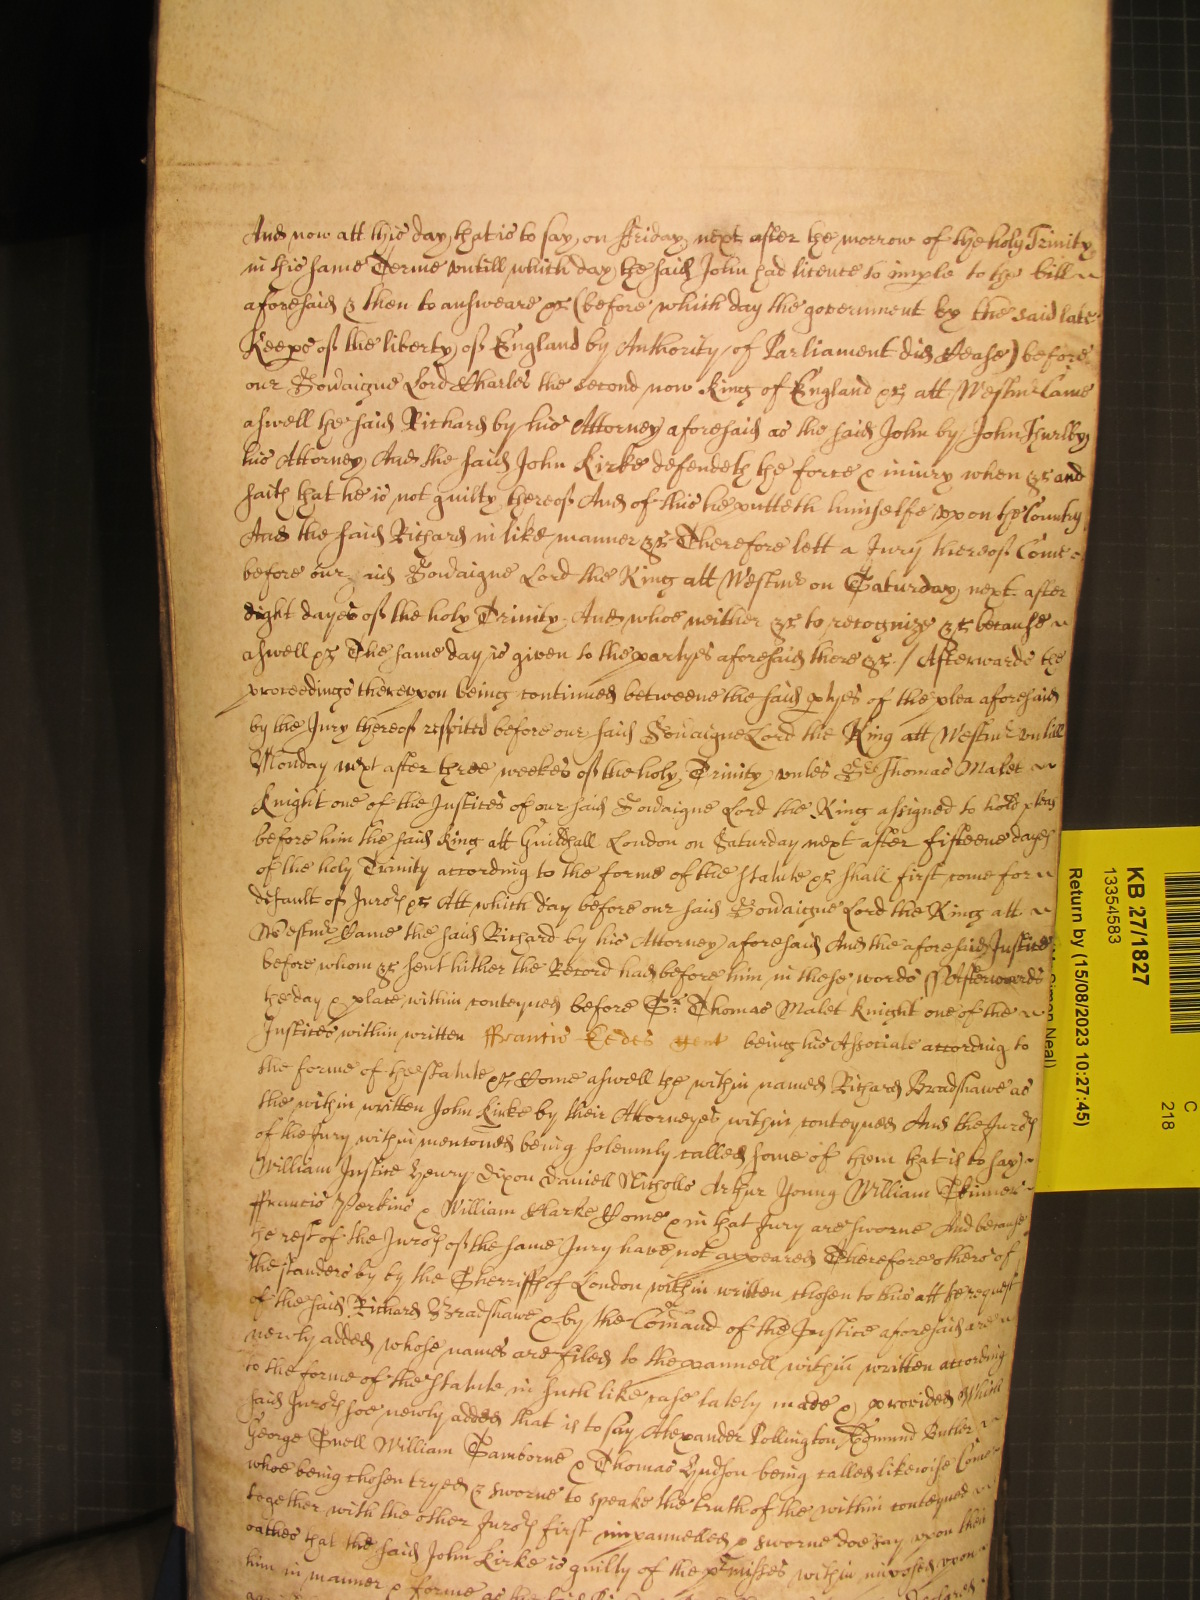 And now att this day that is to say on ffriday next after the morrow of the holy Trinity
in this same Terme untill which day the said John had licence to imple to the bill
aforesaid & then to answeare &c (before which day the government by the said late
Keeps of the liberty of England by Authority of Parliament did Cease) before
our Sovaigne Lord Charles the second now King of England &c att Westmr Came
aswell the said Richard by his Attorney aforesaid as the said John by John Hurlby
his Attorney And the said John Kirke defendeth the force & injury when &c and
saith that he is not guilty thereof And of this he putteth himselfe upon the Country
And the said Richard in like manner &c Therefore lett a Jury thereof Come
before our said Sovaigne Lord the King att Westmr on Saturday next after
Eight dayes of the holy Trinity And whoe neither &c to recognize &c because
aswell &c The same day is given to the partyes aforesaid there &c / Afterwards the
proceedings thereupon being continued betweene the said ptyes of the plea aforesaid
by the Jury thereof respited before our said Sovaigne Lord the King att Westmr untill
Monday next after three weekes of the holy Trinity unles Sr Thomas Malet
Knight one of the Justices of our said Sovaigne Lord the King assigned to hold pleas
before him the said King att Guildhall London on Saturday next after fifteene dayes
of the holy Trinity according to the forme of the statute &c shall first come for
default of Jurors &c Att which day before our said Sovaigne Lord the King att
Westmr Came the said Richard by his Attorney aforesaid And the aforesaid Justice
before whom &c sent hither the Record had before him in these words ss Afterwards
the day & place within conteyned before Sr Thomas Malet Knight one of the
Justices within written ffrancis Eedes gent being his Associate according to
the forme of the statute &c Come aswell the within named Richard Bradshawe as
the within written John Kirke by their Attorneyes within conteyned And the Jurors
of the Jury within mentoned being solemnly called some of them that is to say
William Justice Henry Dixon Daniell Nicholls Arthur Young William Skinner
ffrancis Perkins & William Clarke Come & in that Jury are sworne And because
the rest of the Jurors of the same Jury have not appeared Therefore others of
the standers by by the Sherriffs of London within written chosen to this att the request
of the said Richard Bradshawe & by the Comand of the Justice aforesaid are
newly added whose names are filed to the pannell within written according
to the forme of the statute in such like case lately made & provided Which
said Jurors soe newly added that is to say Alexander Pollington Edmund Butler
George Snell William Tamborne & Thomas Hudson being called likewise Come
whoe being chosen tryed & sworne to speake the truth of the within conteyned
together with the other Jurors first impannelled & sworne doe say upon their
oathes that the said John Kirke is guilty of the pmisses within imposed upon
him in manner & forme as the said
KB 27/1827
13354583
Return by (15/08/2023 10:27:45)
Simon Neal)
C
218